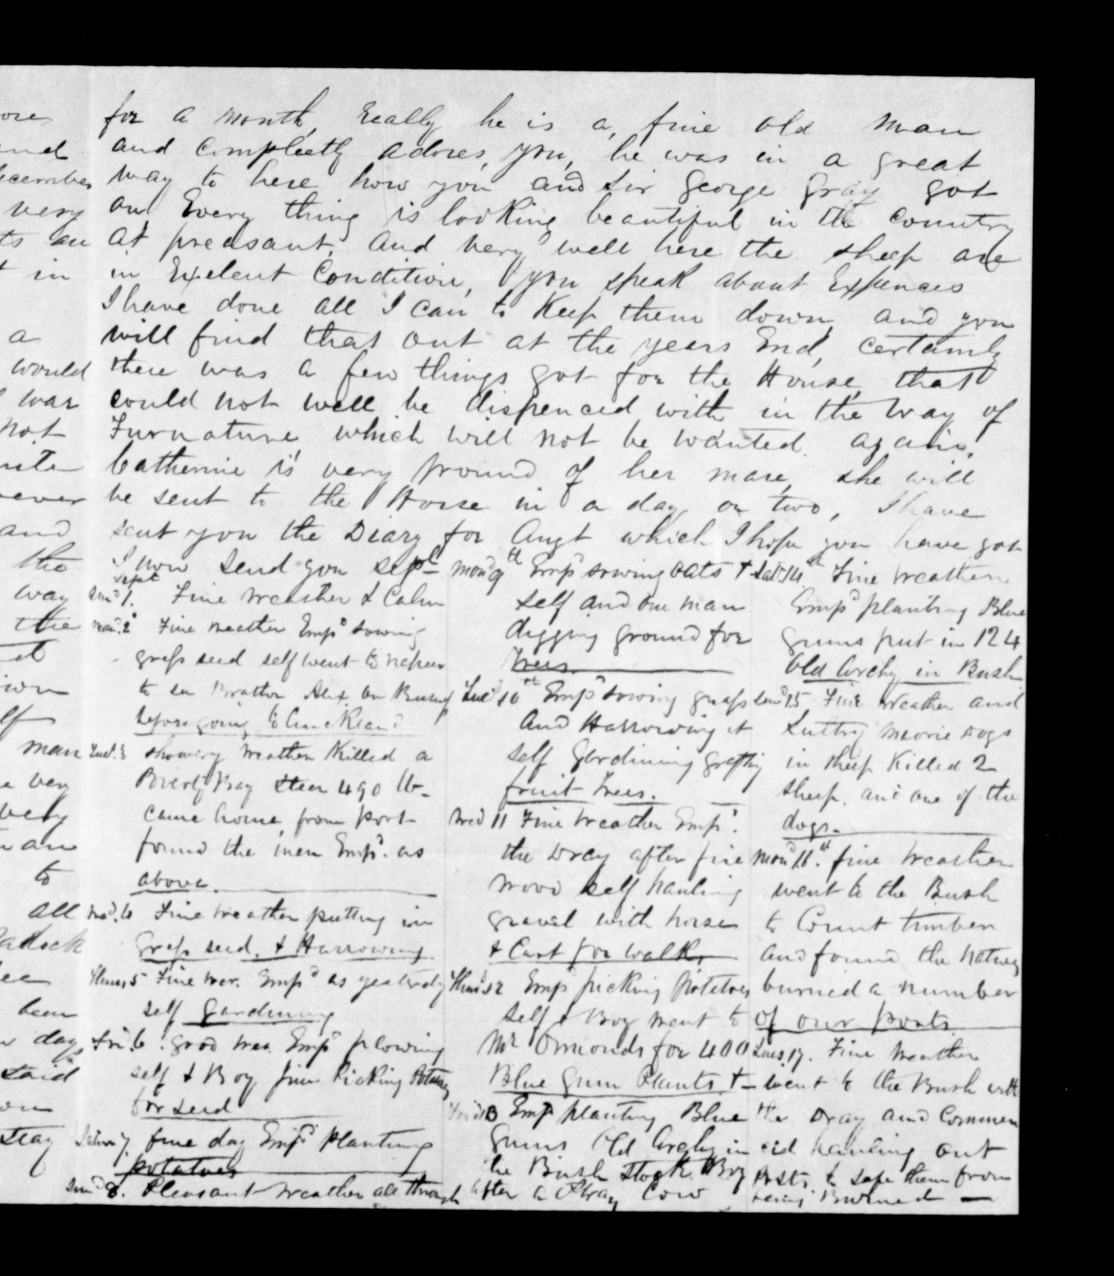 for a month, really he is a, fine old man
and compleetly adores, you, he was in a great
way to here how you and Sir George Gray got
on Every thing is looking beautiful in the country
at preasant, and very well here the sheep are
in Exelent Condition, you speak about Expences
I have done all I can to Keep them down, and you
will find that out at the years End, certainly
there was a few things got for the House, that
could not well be dispenced with in the way of
Furnature which will not be wanted again,
Catherine is very pround of her mare, she will
be sent to the Horse in a day or two, I have
sent you the Diary for Augt which I hope you have got
I now send you Sept
Sept
Sun 1. Fine weather & Calm
Mon. 2 Fine weather Emp sowing
grass seed self went to napier
to see Brother Alex on
before going to Auckland
Tues. 3 showery weather Killed a
Boy Steer 490 lb
came home from Port
found the men Emp. as
above.
Wed. 4 Fine weather putting in
Grass seed. & Harrowing
Thurs 5 Fine wer. Emp as yesterdy
self Gardining
Fri. 6. good wea. Emp plowing
self & Boy Jim Picking Potatoes
for seed
Satur 7. fine day Emp Planting
potatoes
Sun 8. Pleasant weather all through
Mon 9th Emp sowing oats &
self and one man
digging ground for
trees
Tues 10th Emp sowing grass
and Harrowing it
self Gardining
fruit trees.
Wed 11 Fine weather Emp.
the Dray after fire
wood self hauling
gravel with horse
& Cart for walks
Thurs 12 Emp picking Potatoes
self & Boy went to
Mr Ormonds for 400
Blue Gum Plants &
Frid 13 Emp planting Blue
Gums Old Archy in
the Bush Stock Boy
after a Stray Cow
Sat 14th Fine weather
Emp planting Blue
gums put in 124
Old Archy in Bush
Sun 15 Fine weather and
Sultry Maorie dogs
in sheep Killed 2
sheep. and one of the
dogs.
Mon 16th. fine weather
went to the Bush
to Count timber
and found the natives
burned a number
of our posts.
Tues 17. Fine weather
went to the Bush with
the Dray and Commen
ced hauling out
Posts to safe them from
being Burned
ore
and
December
very
in
a
would
I war
not
ever
and
the
way
the
self
man
very
are
to
all
been
day
said
stay